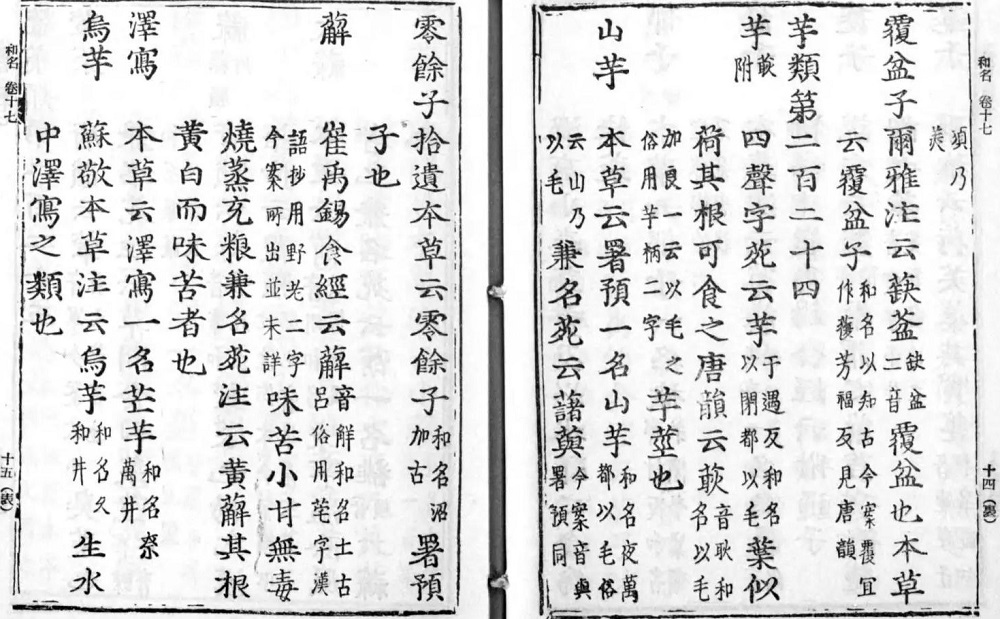 和名 卷十七
湏乃美
覆盆子 爾雅注云蒛葐缺盆二音覆盆也本草
云覆盆子和名以知古今案覆宜作蕧芳福反見唐韻
芋類第二百二十四
芋附 四聲字苑云芋于遇反和名以閉都以毛葉似
荷其根可食之唐韻云音耿和名以毛
加良一云以毛之俗用芋柄二字芋莖也
山芋 本草云署預一名山芋和名夜萬都以毛俗
云山乃以毛兼名苑云藷藇今案音與署預同
十四(裏)
零餘子 拾遺本草云零餘子和名沼加古署預
子也
薢 崔禹錫食經云薢音解和名土古呂俗用字漢
語抄用野老二字今案所出並未詳味苦小甘無毒
燒蒸充粮兼名苑注云黄薢其根
黄白而味苦者也
澤寫 本草云澤寫一名芒芋和名奈萬井
烏芋 蘇敬本草注云烏芋和名久和井生水
中澤寫之類也
和名 卷十七
十五(表)